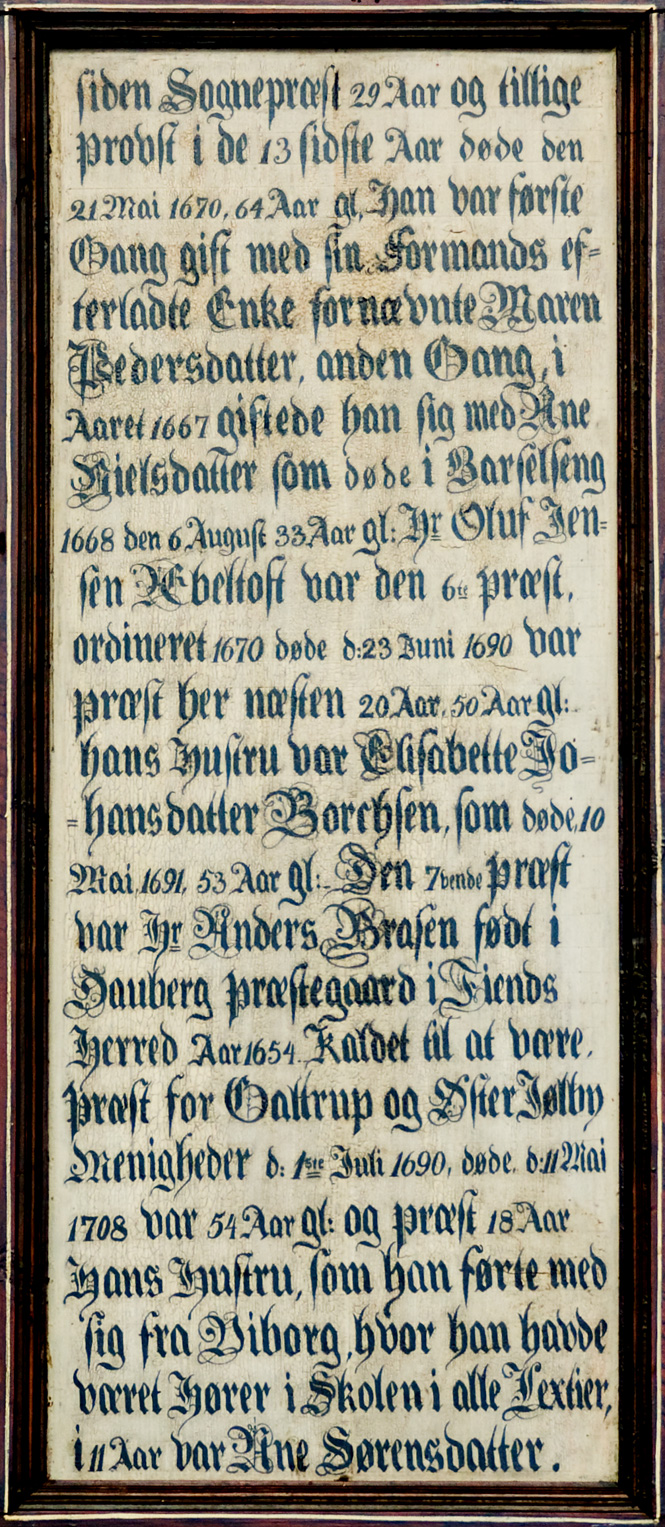 siden Sognepræst 29 Aar og tillige
provst i de 13 sidste Aar døde den
21 Mai 1670, 64 Aar gl, Han var første
Gang gift med sin Formands ef=
terladte Enke fornævnte Maren
Pedersdatter, anden Gang, i
Aaret 1667 giftede han sig med Ane
Nielsdatter som døde i Barselseng
1668 den 6 August 33 Aar gl: Hr Oluf Jen=
sen Æbeltoft var den 6te præst,
ordineret 1670 døde d: 23 Juni 1690 var
præst her næsten 20 Aar, 50 Aar gl:
hans Hustru var Elisabette Jo=
=hansdatter Borchsen, som døde, 10
Mai, 1691, 53 Aar gl: Den 7vende præst
var Hr Anders Brasen født i
Dauberg præstegaard i Fiends
Herred Aar 1654. Kaldet til at være,
præst for Galtrup og Øster Jølby
Menigheder d: 1ste Juli 1690, døde, d: 11 Mai
1708 var 54 Aar gl: og præst 18 Aar
Hans Hustru, som han førte med
sig fra Viborg, hvor han havde
været Hører i Skolen i alle Lextier,
i 11 Aar var Ane Sørensdatter.